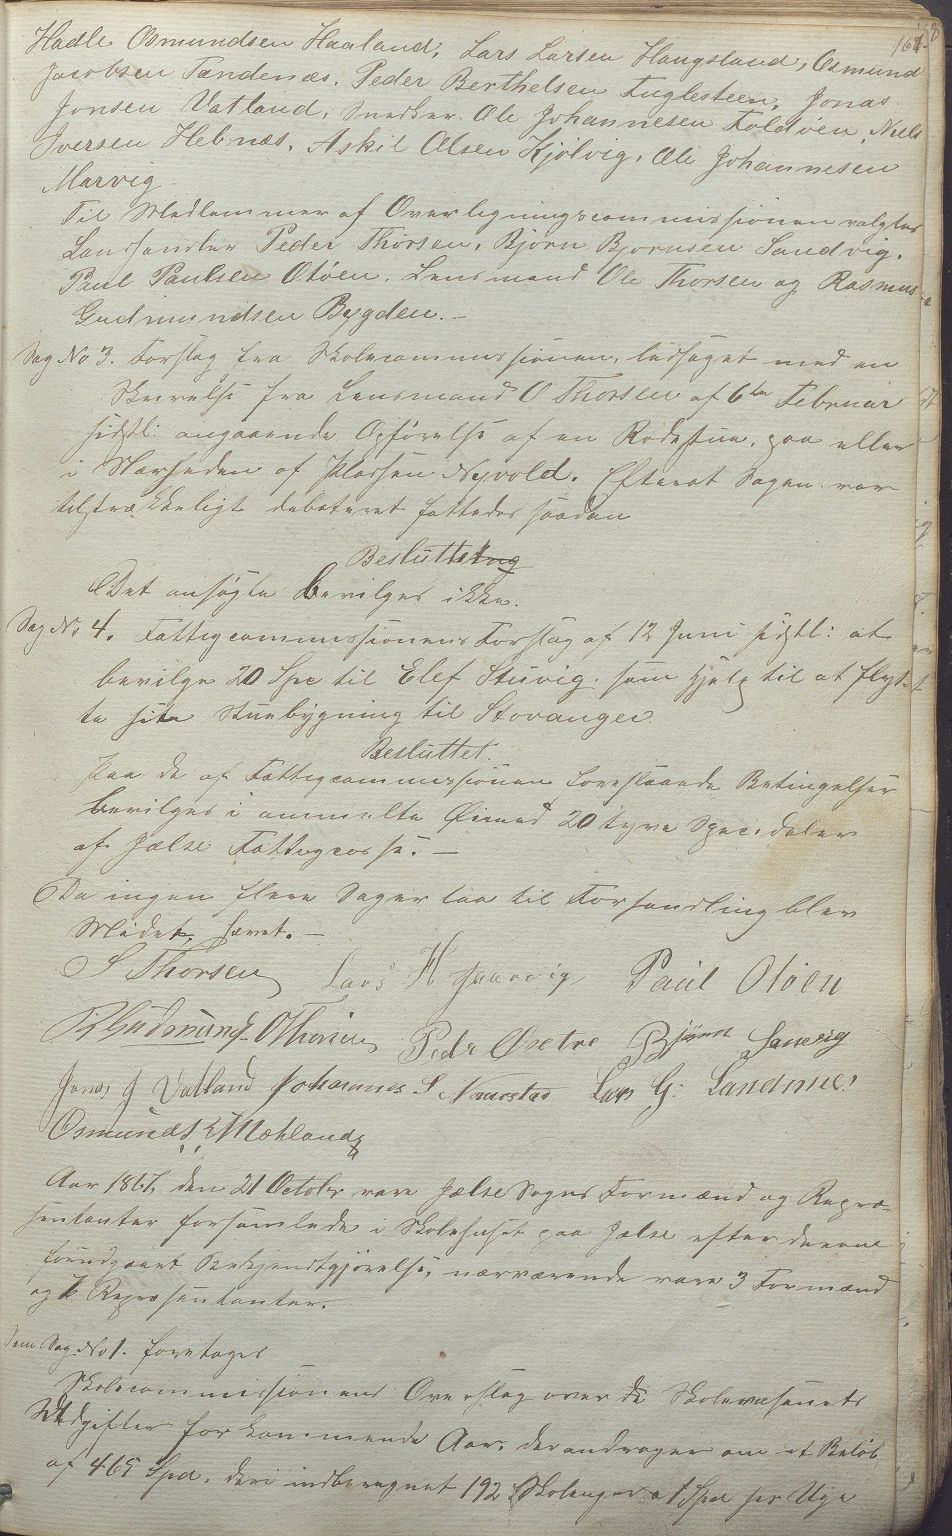 168
Hadle Osmundsen Haaland, Lars Larsen Haugsland, Osmund
Jacobsen Tandenæs. Peder Berthelsen Fuglesteen, Jonas
Jonsen Vatland, Snedker Ole Johannesen Foldøen, Niels
Iversen Hebnæs, Askil Olsen Kjølvig, Ole Johannesen
Marvig.
Til Medlemmer af Overligningscommissionen valgtes
Landhandler Peder Thorsen, Bjørn Bjørnsen Sandvig,
Paul Paulsen Otøen, Lensmand Ole Thorsen og Rasmus
Gudmundsen Bygden. —
Sag No 3. Forslag fra Skolecommissionen, ledsaget med en
Skrivelse fra Lensmand O Thorsen af 6te Februar
sidstl: angaaende Opførelse af en Rodestue, paa eller
i Nærheden af Pladsen Nyvold. Efterat Sagen var
tilstrækkeligt debateret fattedes saadan
Beslutning
Det ansøgte bevilges ikke.
Sag No. 4. Fattigcommissionens Forslag af 12 Juni sidstl: at
bevilge 20 Spd til Elef Stuvig som Hjelp til at flyt-
te sin Stuebygning til Stavanger.
Besluttet.
Paa de af Fattigcommissionen foreslaaede Betingelser
bevilges i anmeldte Øiemed 20 tyve Speciedaler
af Jælse Fattigcasse. —
Da ingen flere Sager laa til Forhandling blev
Mødet hævet. —
S Thorsen Lars H Paul Otøen
R Gudmunds. O Thorsen Peder Bjørn Sanvig
Jonas J Vatland Johannes S Lars G: Sandnæs
Osmund Mæhland
Aar 1867, den 21 October vare Jælse Sogns Formænd og Repræ-
sentanter forsamlede i Skolehuset paa Jælse efter derom
foregaaet Bekjendtgjørelse, nærværende vare 3 Formænd
og 7 Repræsentanter.
Sag No 1. foretoges
Skolecommissionens Overslag over de Skolevæsenets
Udgifter for kommende Aar, der andrager om et Beløb
af 465 Spd. deri indberegnet 192 Skoleuger a 1 Spd per Uge